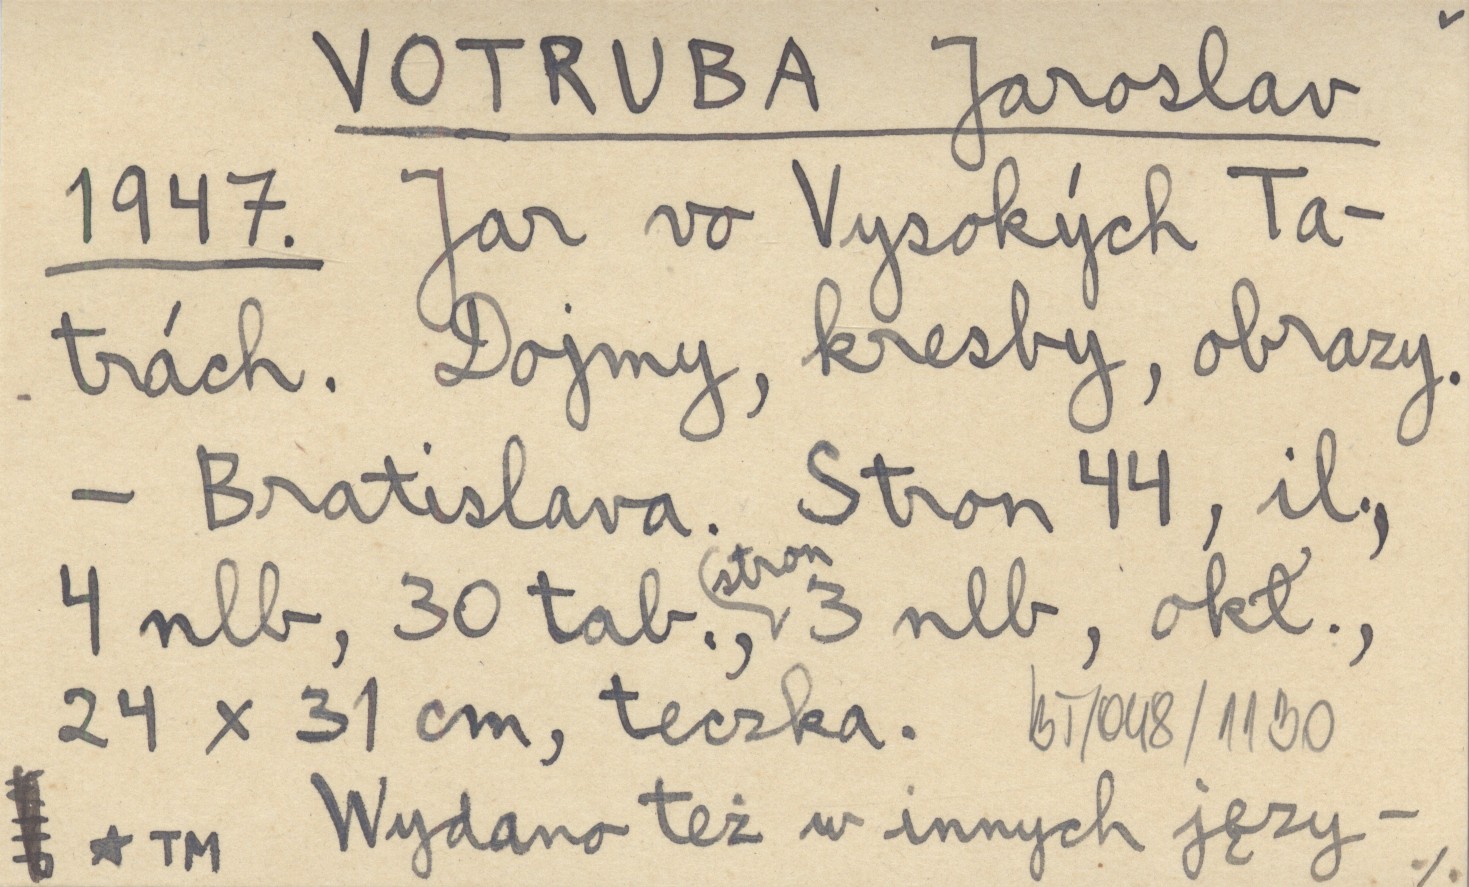 VOTRUBA Jaroslav
1947. Jar vo Vysokých Ta-
trách. Dojmy, kresby, obrazy.
– Bratislava. Stron 44, il.,
stron
4 nlb, 30 tab., 3 nlb, okł.,
24 x 31 cm, teczka. BT/048/1130
★ TM Wydano też w innych języ-
./.